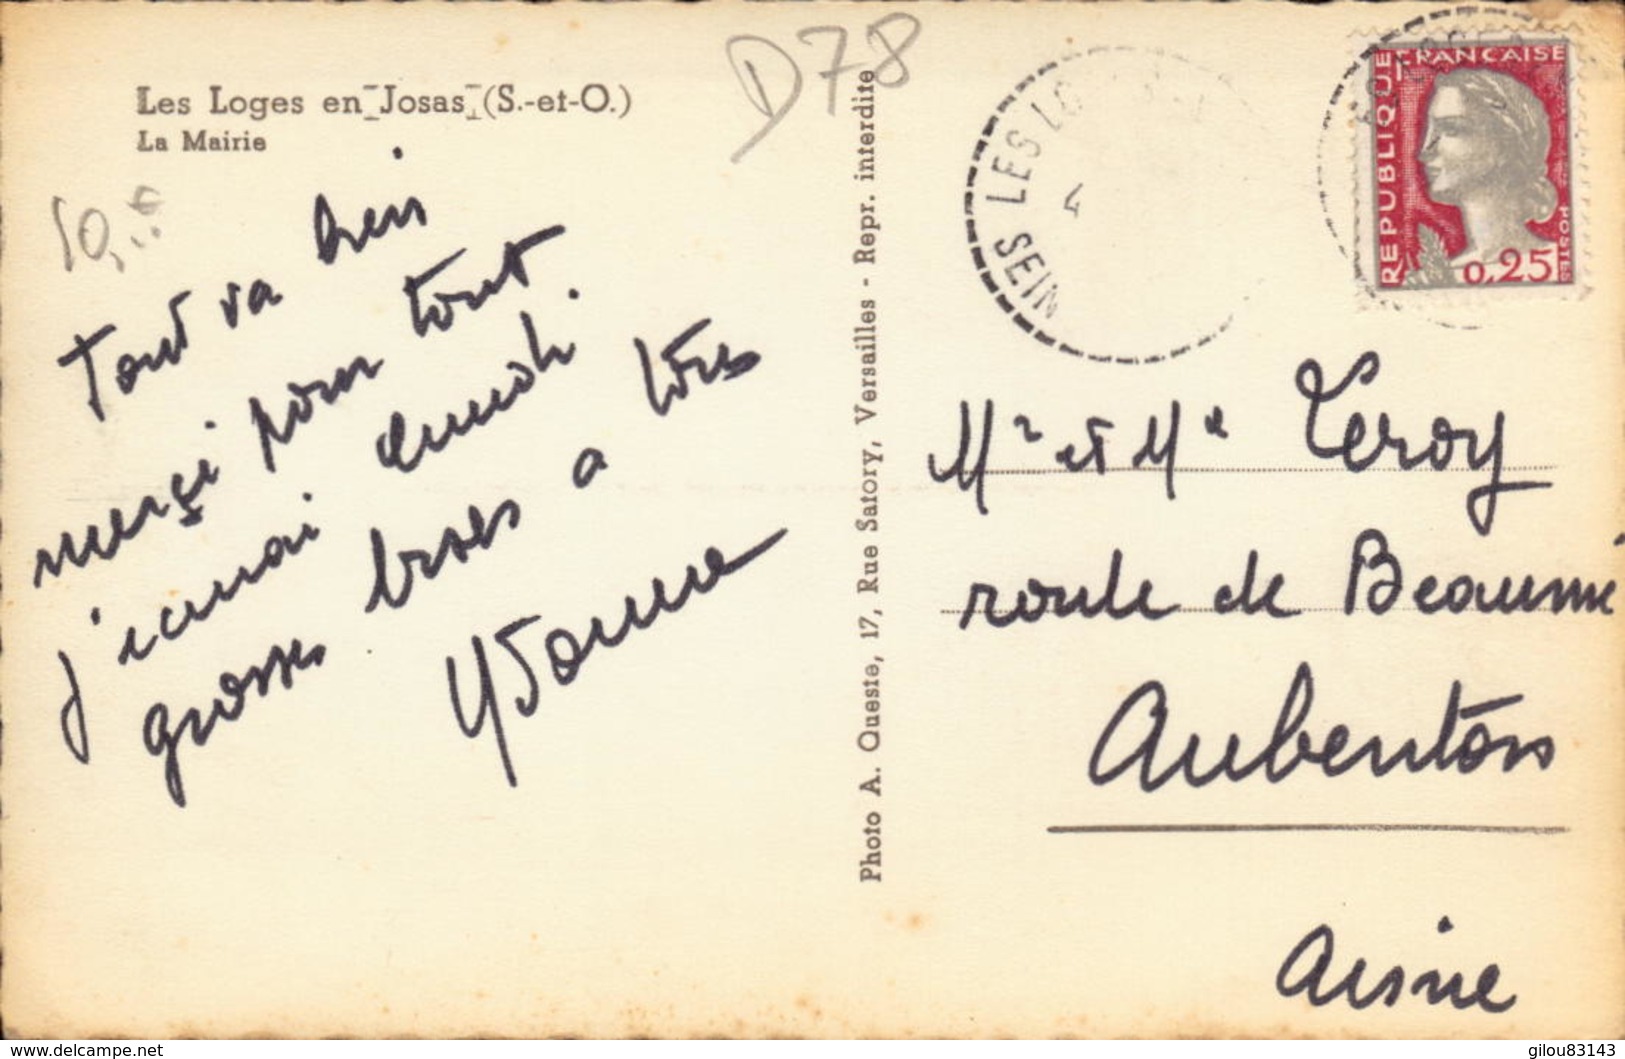 D78
Les Loges en Josas (S.-et-O.)
La Mairie
10,
Tout va bien
merçi pour tout
j'écrirai
grosses bises a tous
Yvonne
Photo A. Queste, 17, Rue Satory, Versailles - Repr. interdite
LES LO
SEIN
4
REPUBLIQUE
FRANCAISE
POSTES
0,25
Mr et Me Leroy
route de Beaumé
Aubenton
Aisne
https://www.delcampe.net
gilou83143